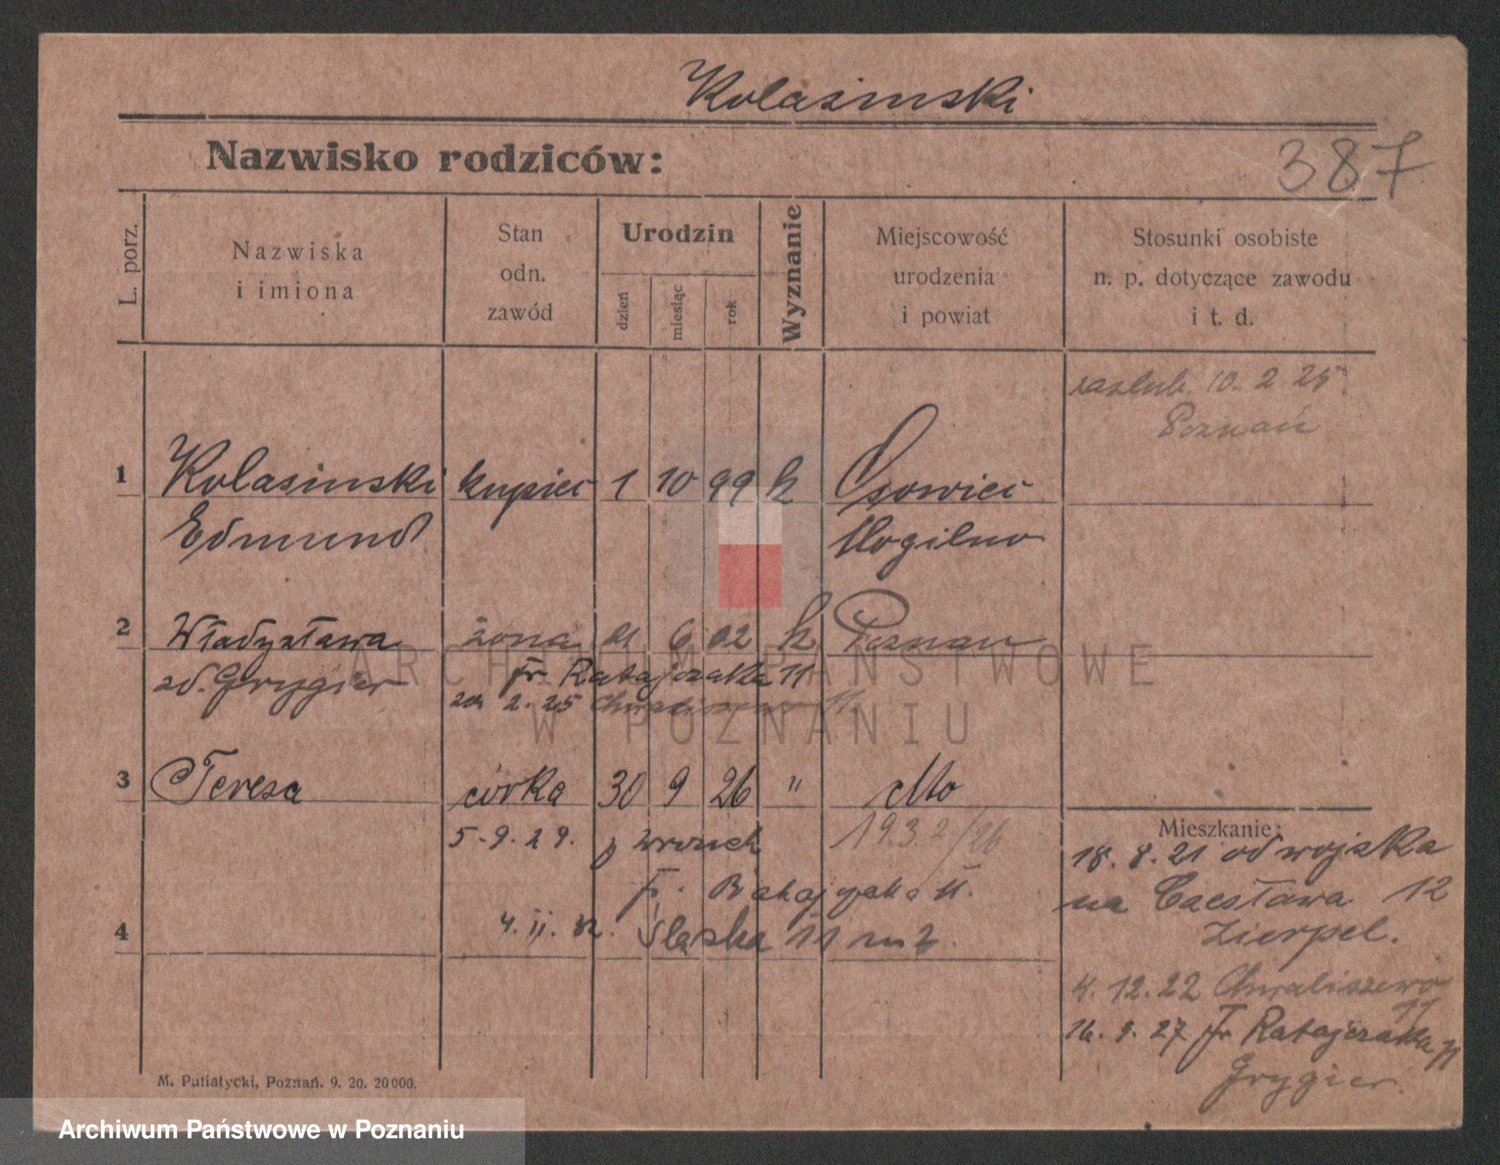 Kolasinski
Nazwisko rodziców:
387
L. porz.
Nazwiska
i imiona
Stan
odn.
zawód
Urodzin
dzień
miesiąc
rok
Wyznanie
Miejscowość
urodzenia
i powiat
Stosunki osobiste
n. p. dotyczące zawodu
i t. d.
zaslub. 10. 2 25
Poznań
1 Kolasinski kupiec 1 10 99 k
Edmund Mogilno
2 Władysława żona 21 6 02 k Poznan
zd. Grygier Fr Ratajczaka 11
2. 25 11.
3 Teresa córka 30 9 26 " dto
5-9.29. 193.2/26
Fr. 11.
4 Śląska 11 m
Mieszkanie:
18. 8. 21 od wojska
na Czesława 12
Zierpel.
4. 12. 22 Chwaliszewo
11
16. 8. 27 Fr Ratajczaka 11
Grygier.
M. Putiatycki, Poznań. 9. 20. 20000.
ARCHIWUM PAŃSTWOWE
W POZNANIU
Archiwum Państwowe w Poznaniu